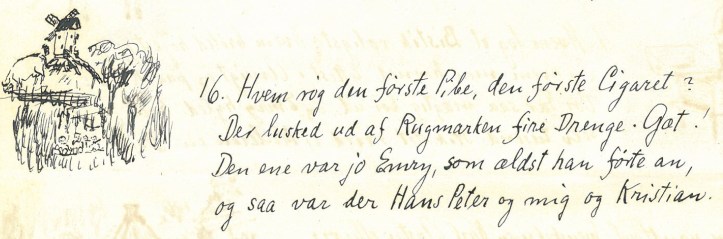 16. Hvem røg den første Pibe, den første Cigaret?
Der lusked ud af Rugmarken fire Drenge. Gæt!
Den ene var jo Emry, som ældst han førte an,
og saa var der Hans Peter og mig og Kristian.